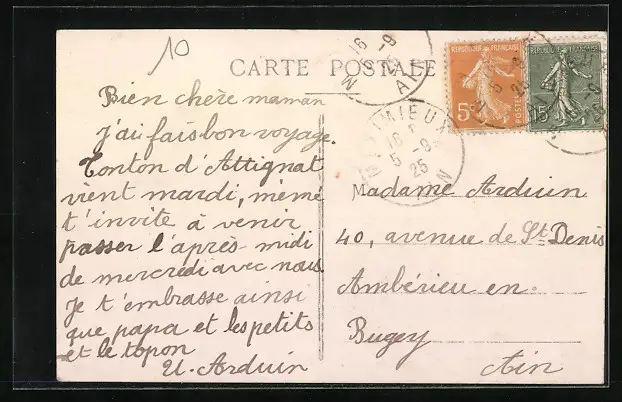 10
CARTE POSTALE
REPUBLIQUE FRANÇAISE
5c
POSTES
REPUBLIQUE FRANÇAISE
15c
MEXIMIEUX
16
5 -9
25
AIN
Bien chère maman
j'ai fais bon voyage.
Tonton d'Attignat
vient mardi, mémé
t'invite à venir
passer l'après-midi
de mercredi avec nous.
Je t'embrasse ainsi
que papa et les petits
et le topon
U. Arduin
Madame Arduin
40, avenue de St Denis
Ambérieu en
Bugey
Ain